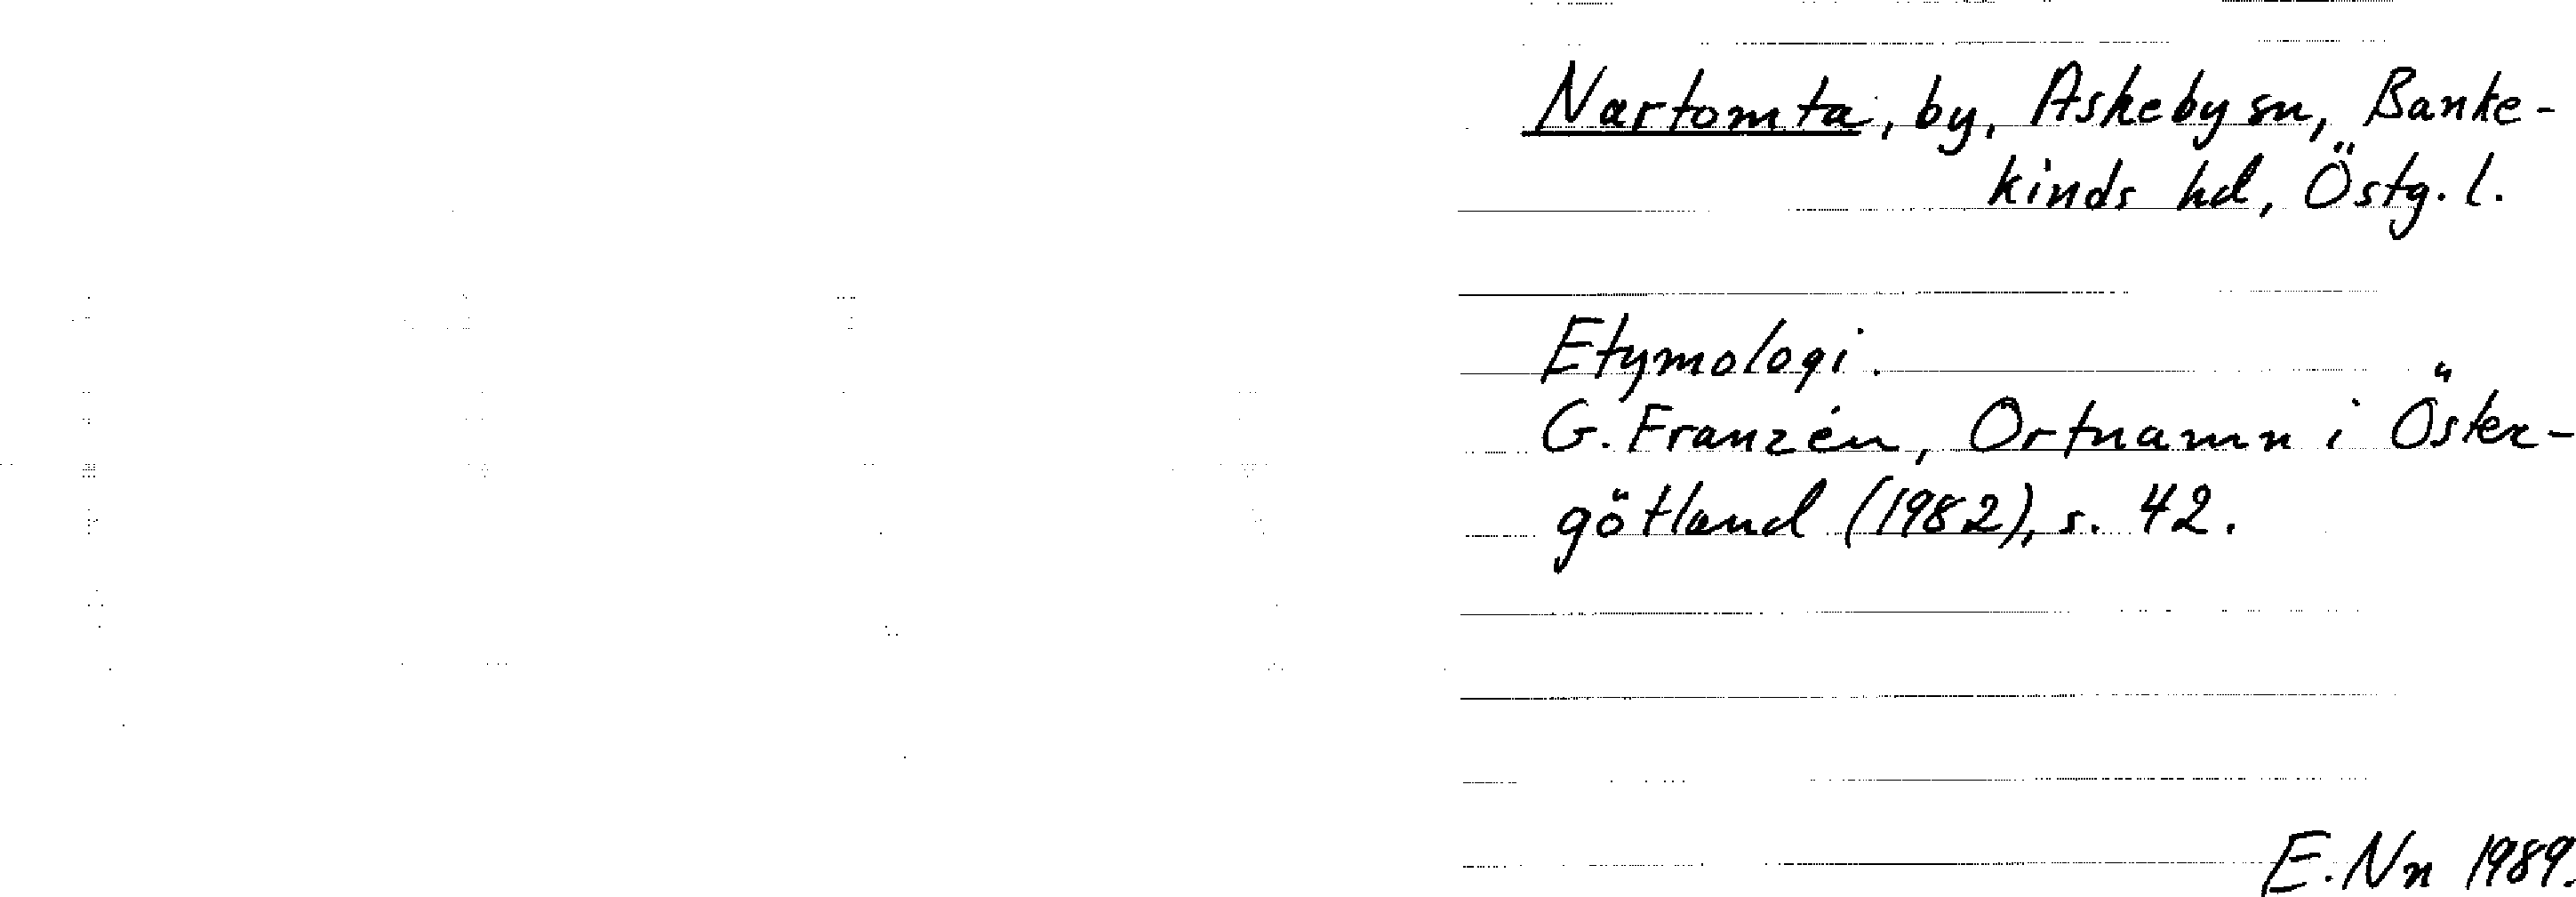 Nartomta, by, Askeby sn, Banke-
kinds hd, Östg. l.
Etymologi.
G. Franzén, Ortnamn i Öster-
götland (1982), s. 42.
E. Nn 1989.